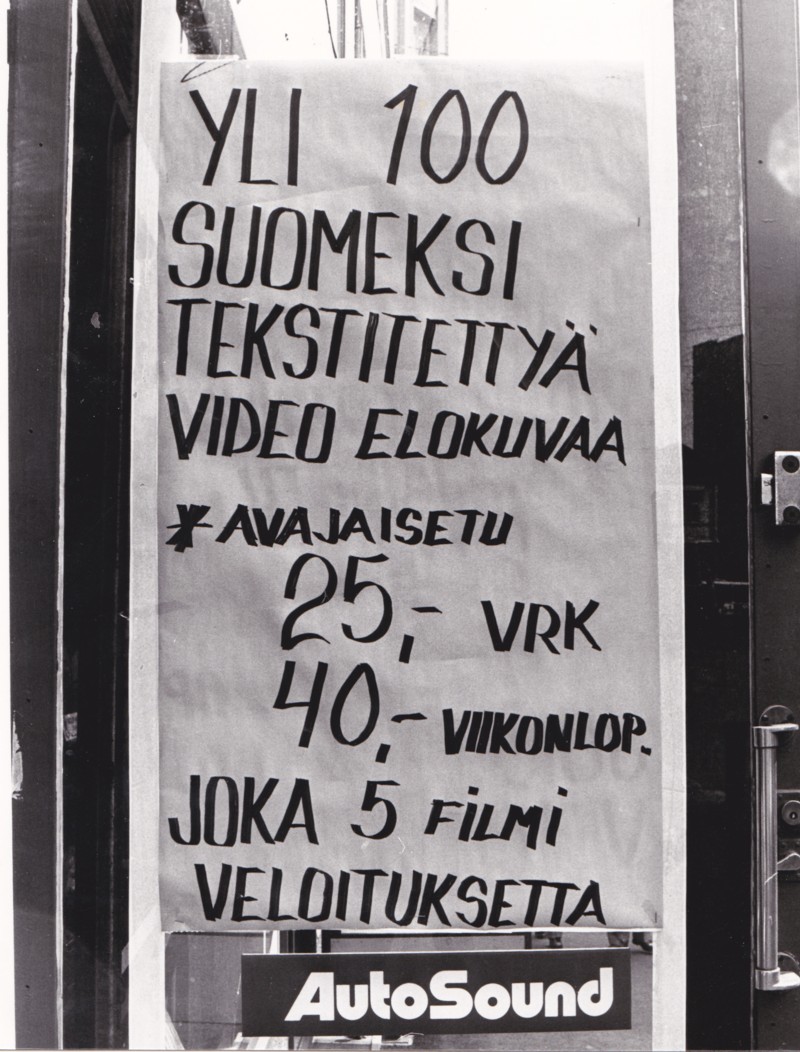 YLI 100
SUOMEKSI
TEKSTITETTYÄ
VIDEO ELOKUVAA
* AVAJAISETU
25,- VRK
40,- VIIKONLOP.
JOKA 5 FiLMi
VELOITUKSETTA
AutoSound